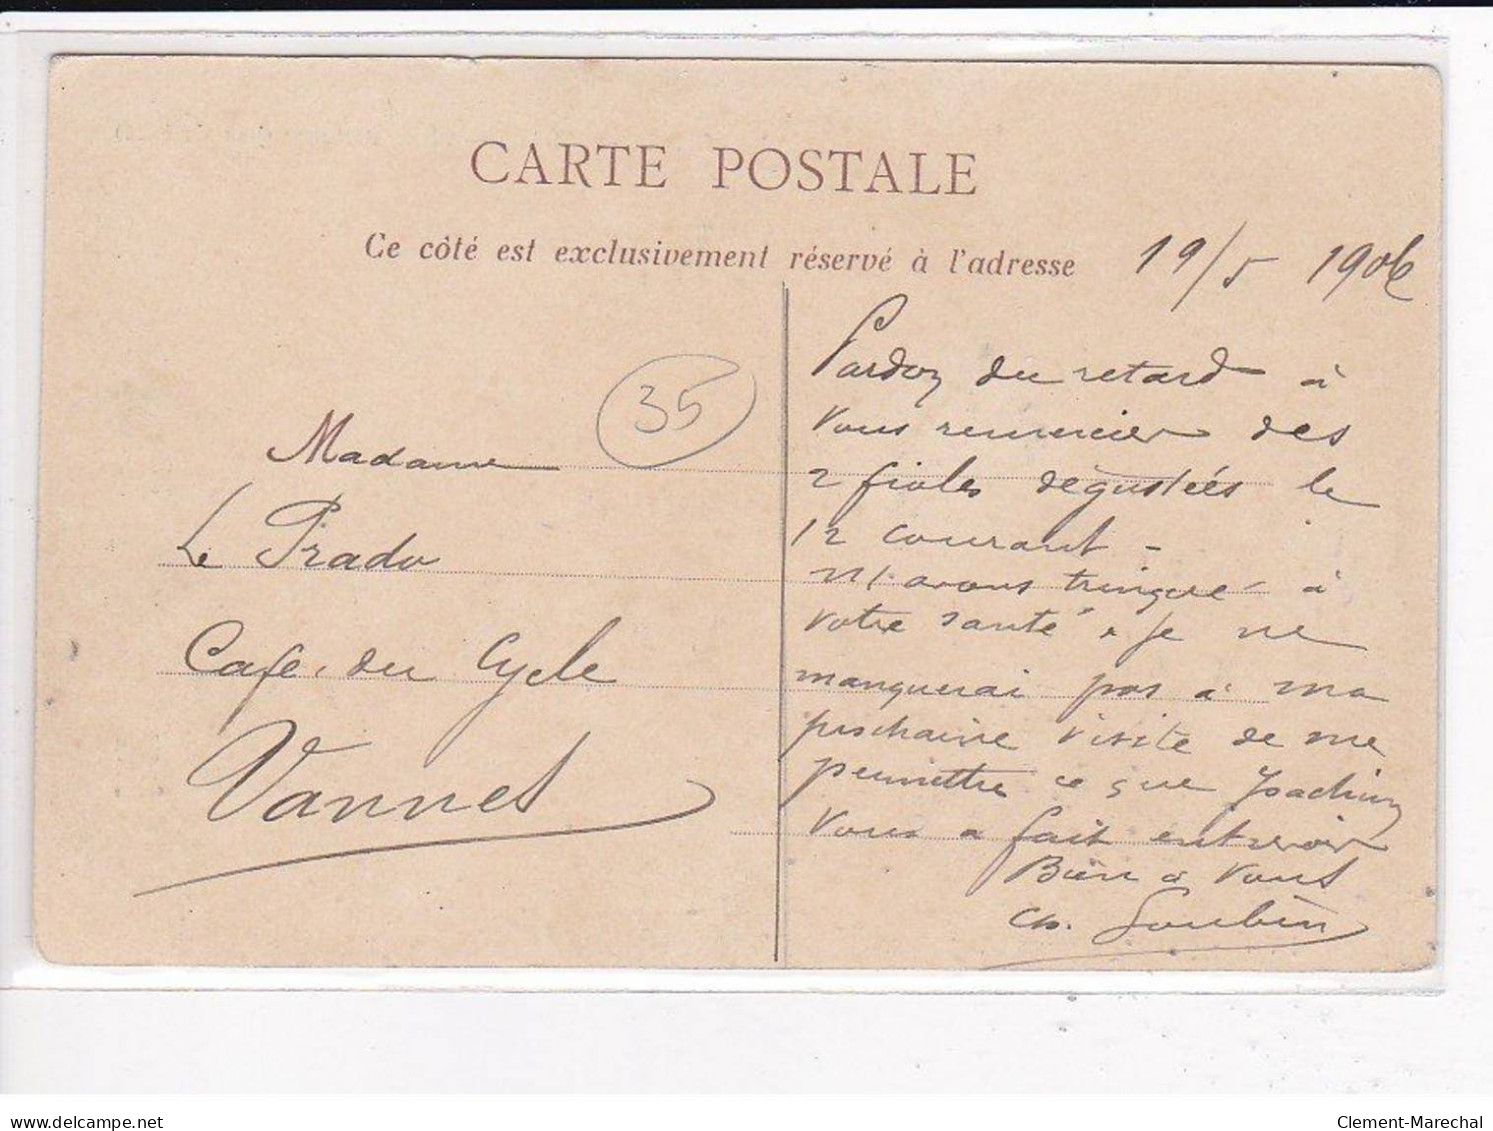 CARTE POSTALE
Ce côté est exclusivement réservé à l'adresse
19/5 1906
35
Madame
Le Prado
Café du Cycle
Vannes
Pardon du retard à
vous remercier des
2 fioles dégustées le
12 courant -
n/ avons trinqué à
votre santé & je ne
manquerai pas à ma
prochaine visite de me
permettre ce que Joachim
vous a fait entrevoir
Bien à vous
Ch. Soubin
delcampe.net
Clement-Marechal